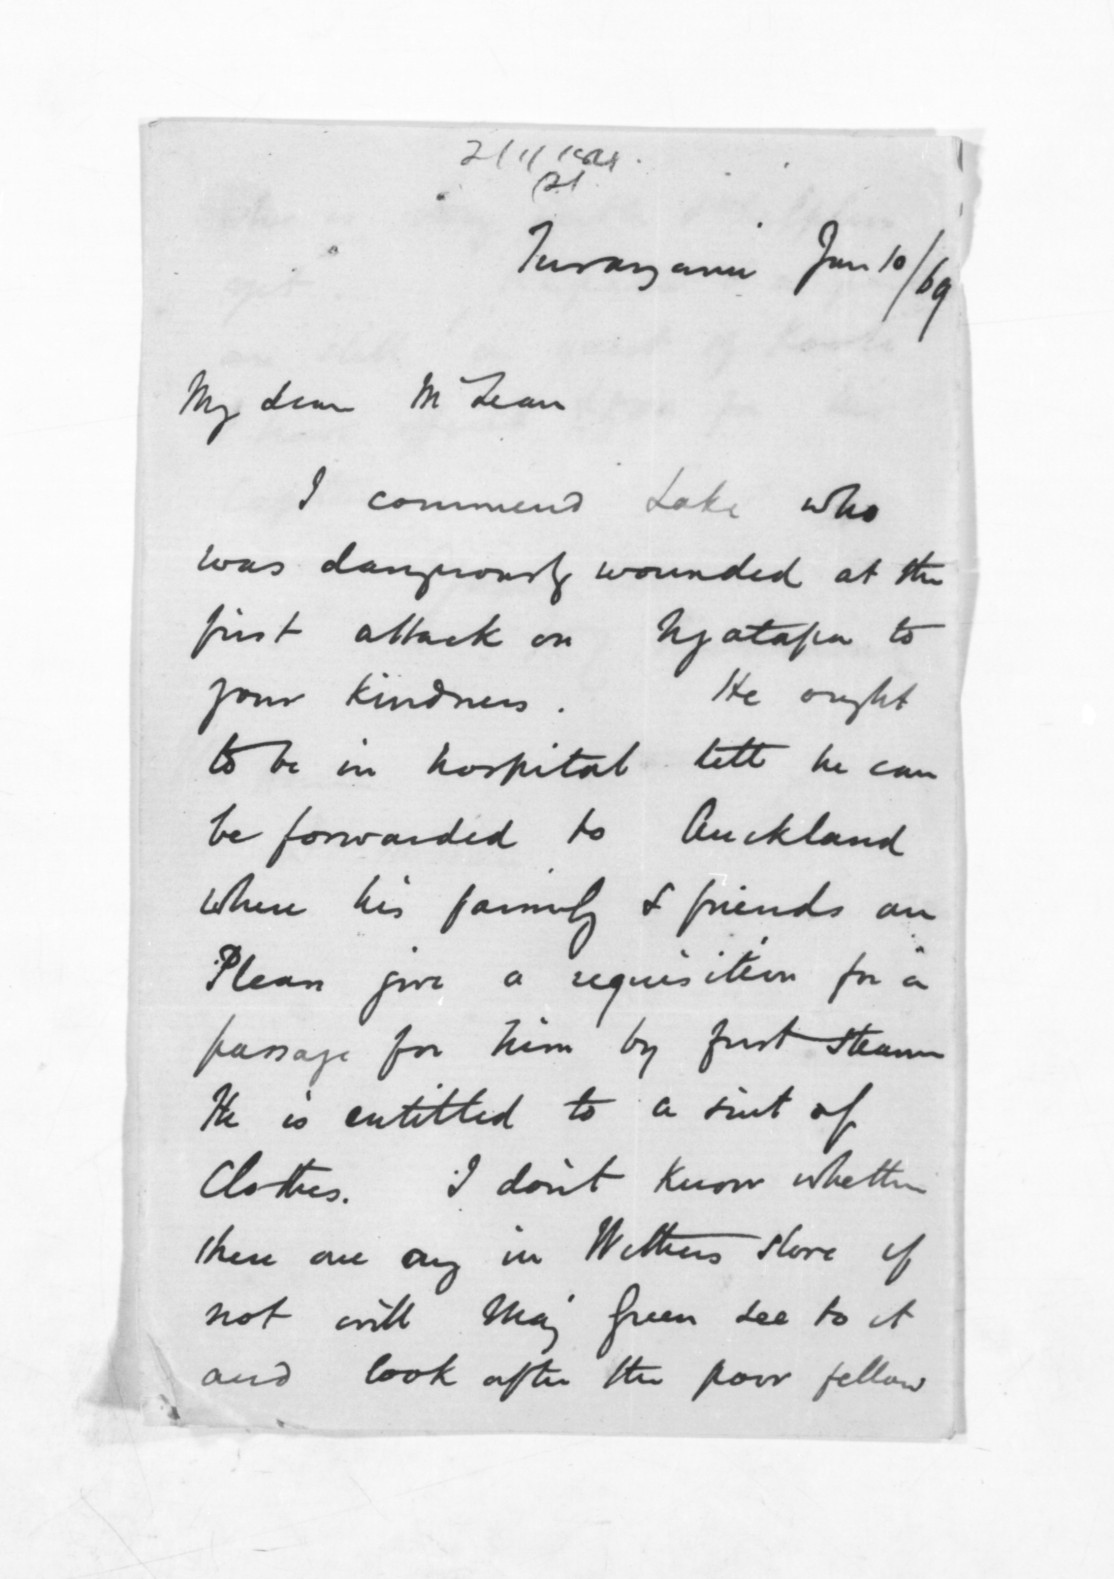 Turanganui Jan 10/69
My dear McLean
I commend Lake who
was dangerously wounded at the
first attack on Ngatapa to
your kindness. He ought
to be in hospital till he can
be forwarded to Auckland
where his family & friends are
Please give a requisition for a
passage for him by first steamer
He is entitled to a suit of
Clothes. I don't know whether
there are any in Withers store if
not will Maj Green see to it
and look after the poor fellow